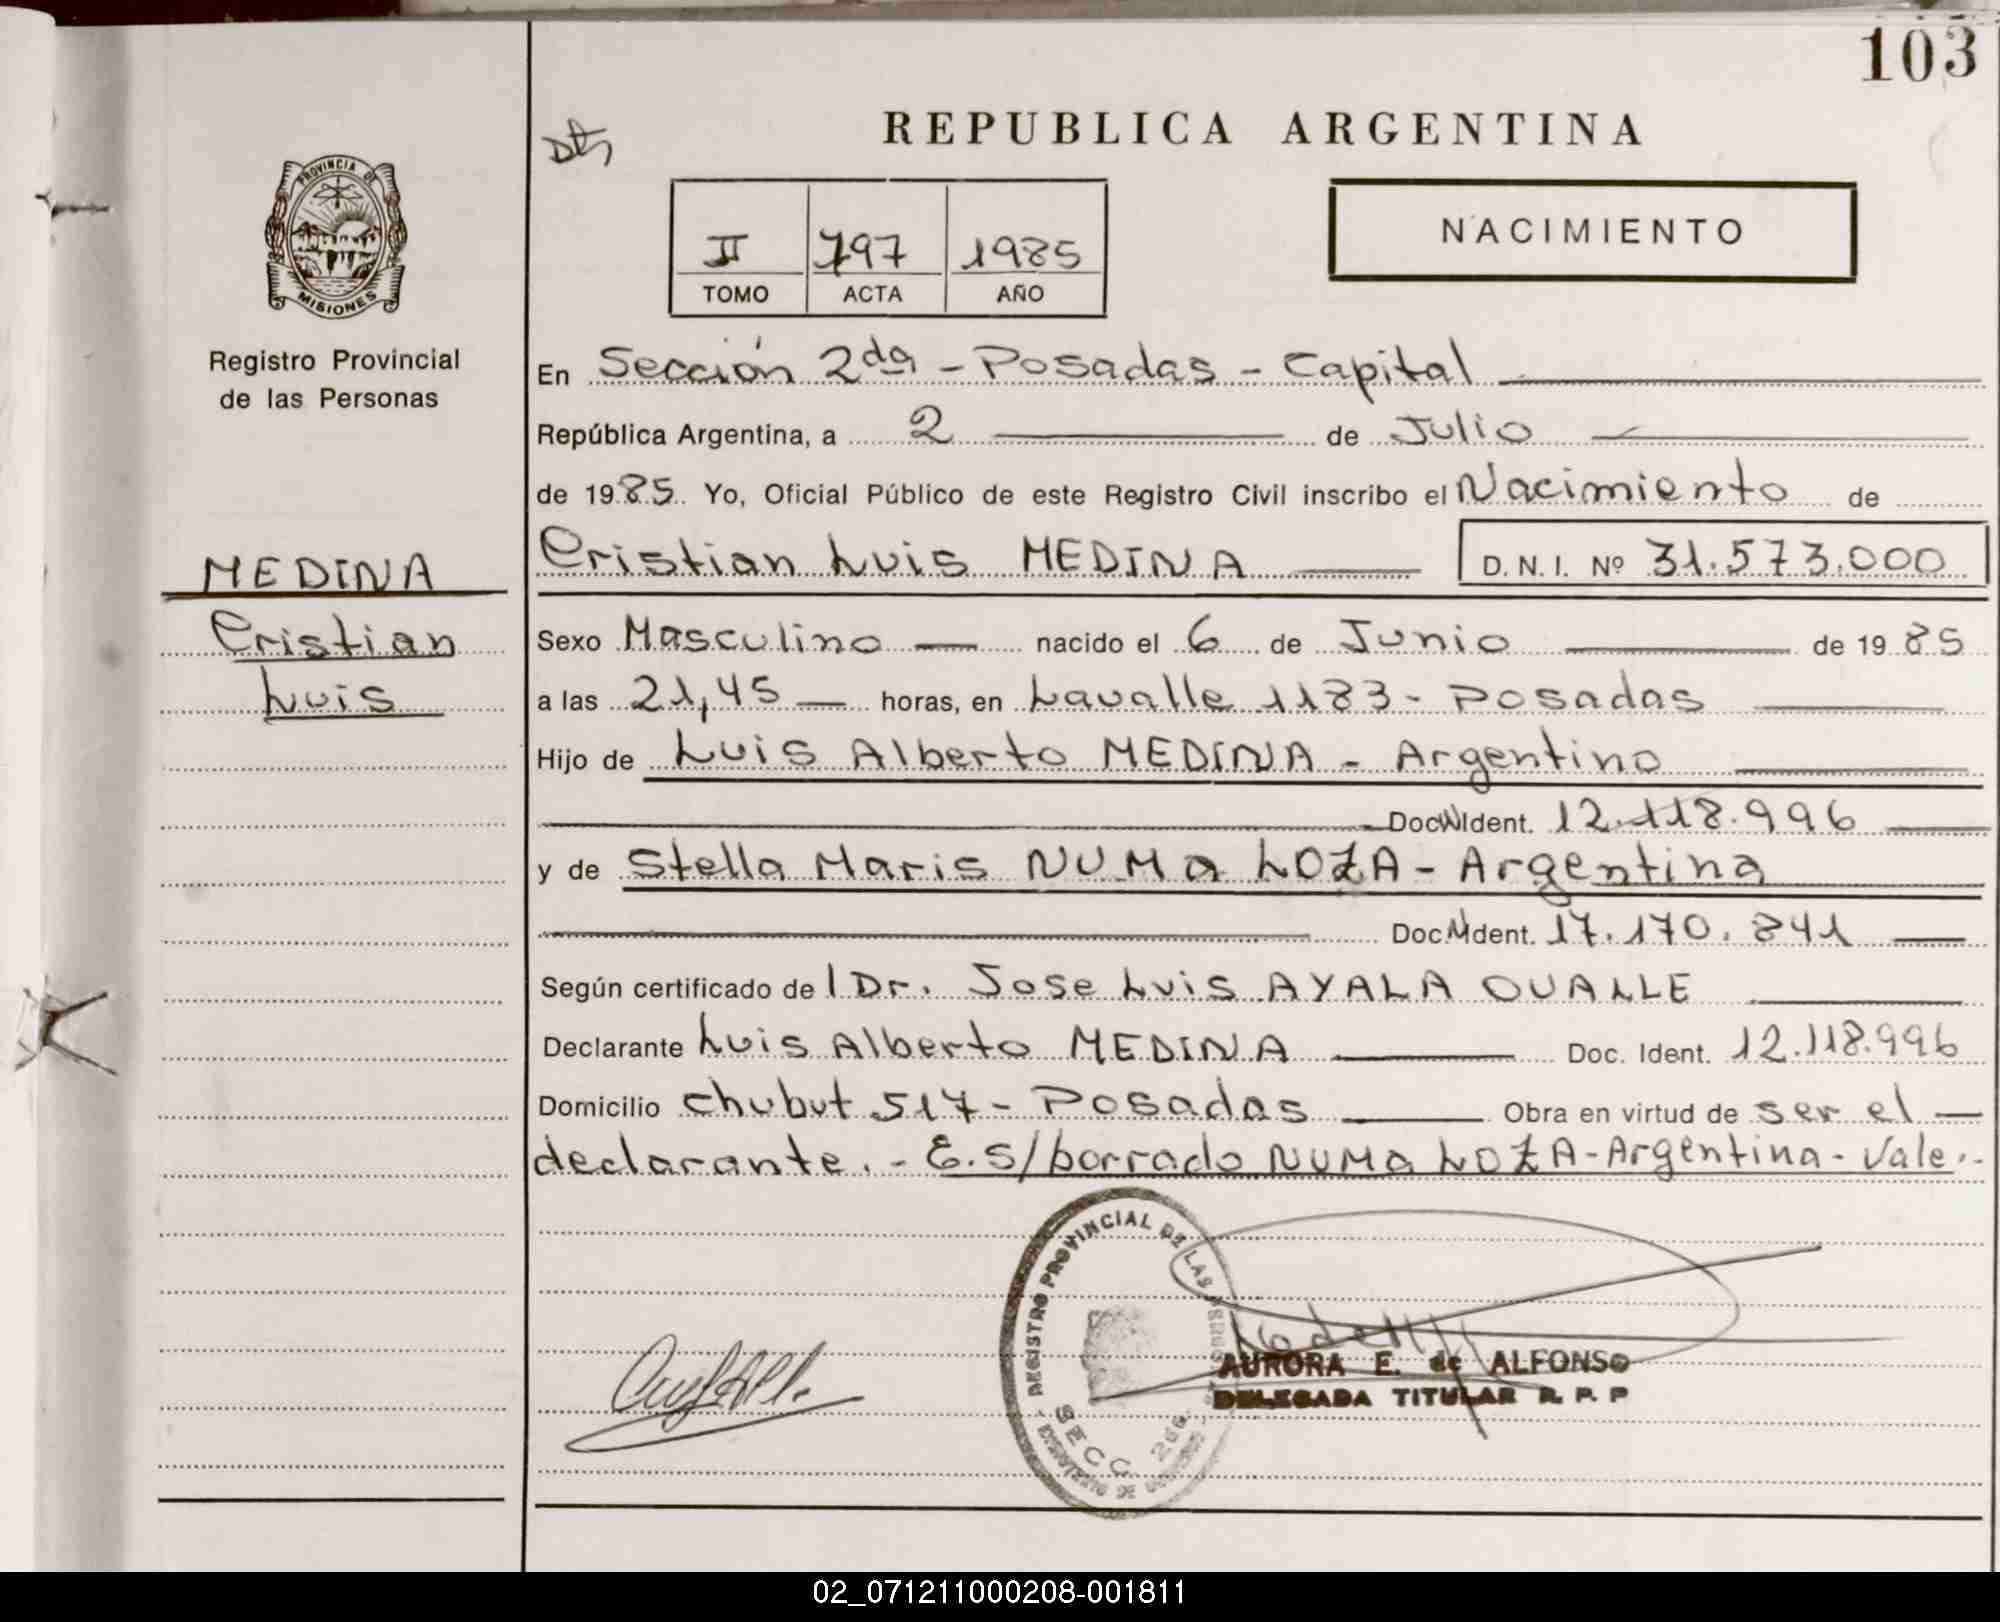 103
REPUBLICA ARGENTINA
PROVINCIA DE
MISIONES
Registro Provincial
de las Personas
II 797 1985
TOMO ACTA AÑO
NACIMIENTO
En Sección 2da - Posadas - Capital
República Argentina, a 2 de Julio
de 1985 Yo, Oficial Público de este Registro Civil inscribo el Nacimiento de
Cristian Luis MEDINA D.N.I. Nº 31.573.000
MEDINA
Cristian
Luis
Sexo Masculino nacido el 6 de Junio de 1985
a las 21,45 horas, en Lavalle 1183 - Posadas
Hijo de Luis Alberto MEDINA - Argentino
Doc. Ident. 12.118.996
y de Stella Maris NUMA LOZA - Argentina
Doc. Ident. 17.170.841
Según certificado del Dr. Jose Luis AYALA OVALLE
Declarante Luis Alberto MEDINA Doc. Ident. 12.118.996
Domicilio Chubut 517 - Posadas Obra en virtud de ser el
declarante. - E.S/borrado NUMA LOZA - Argentina - Vale.-
REGISTRO PROVINCIAL DE LAS
SECC. 2da.
AURORA E. de ALFONSO
DELEGADA TITULAR R. P. P
02_071211000208-001811